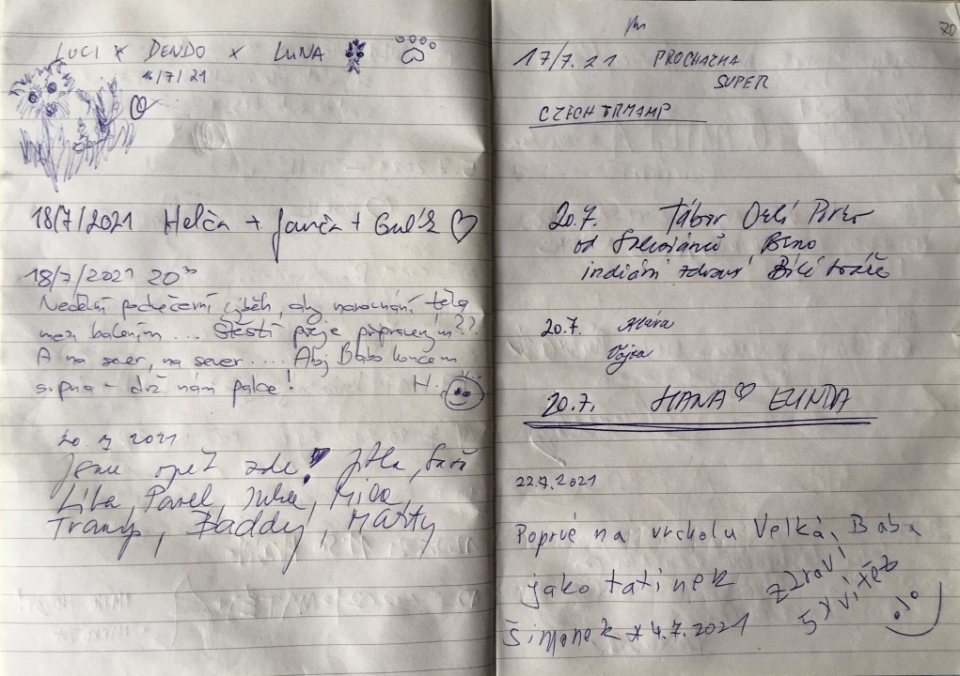 LUCI x DENDO x LUNA
16/7/21
18/7/2021 Helča + Janča + Gulík
18/7/2021 20
Nedělní podvečerní výběh, aby narovnání těla
mezi balením... Štěstí přeje připraveným??
A na sever, na sever.... Ahoj Babo končem
srpna - drž nám palce! H.
20. 7 2021
Jsme opět zde! Jitka,
Líba, Pavel, Míla,
Tramp, Daddy, Matty
70
17/7.21 PROCHAZKA
SUPER
CZECH TRMAMP
20.7. Tábor Orlí Pírko
od Brno
indiáni zdraví Bílé tváře
20.7. Klára
Vojta
20.7. HANA
22.7.2021
Poprvé na vrcholu Velká Baba
jako tatínek
zdraví
Šimonek * 4.7.2021